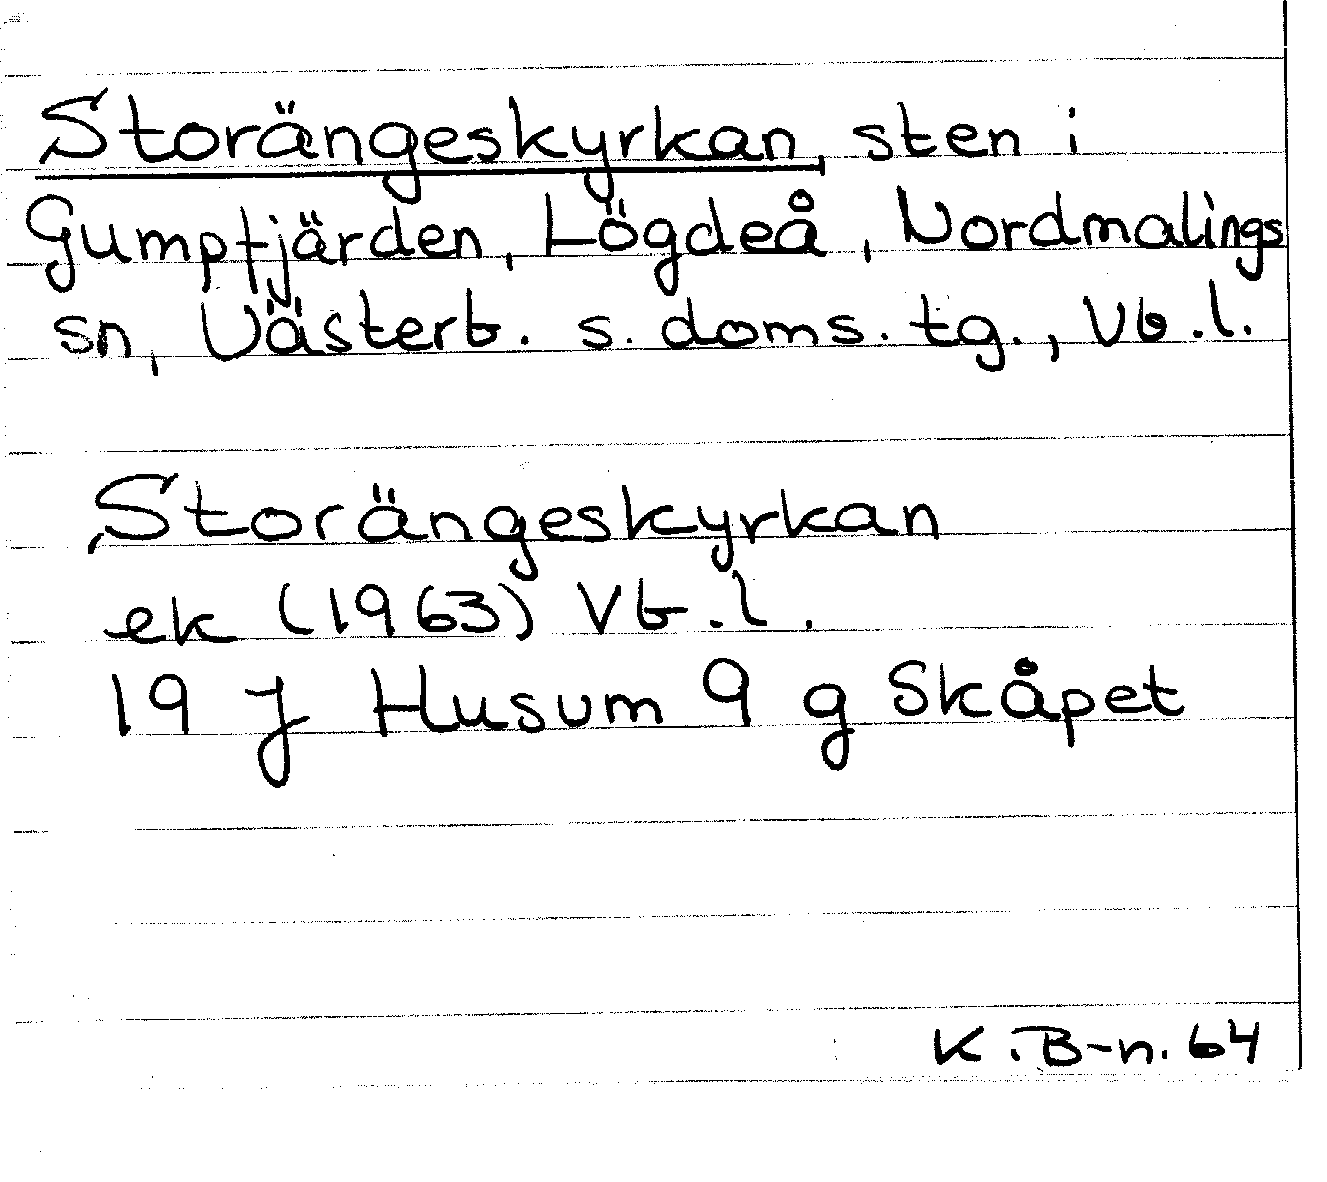 Storängeskyrkan, sten i
Gumptjärden, Lögdeå, Nordmalings
sn, Västerb. s. doms. tg., Vb.l.
Storängeskyrkan
ek (1963) Vb.l.
19 J Husum 9 g Skåpet
K.B-n. 64